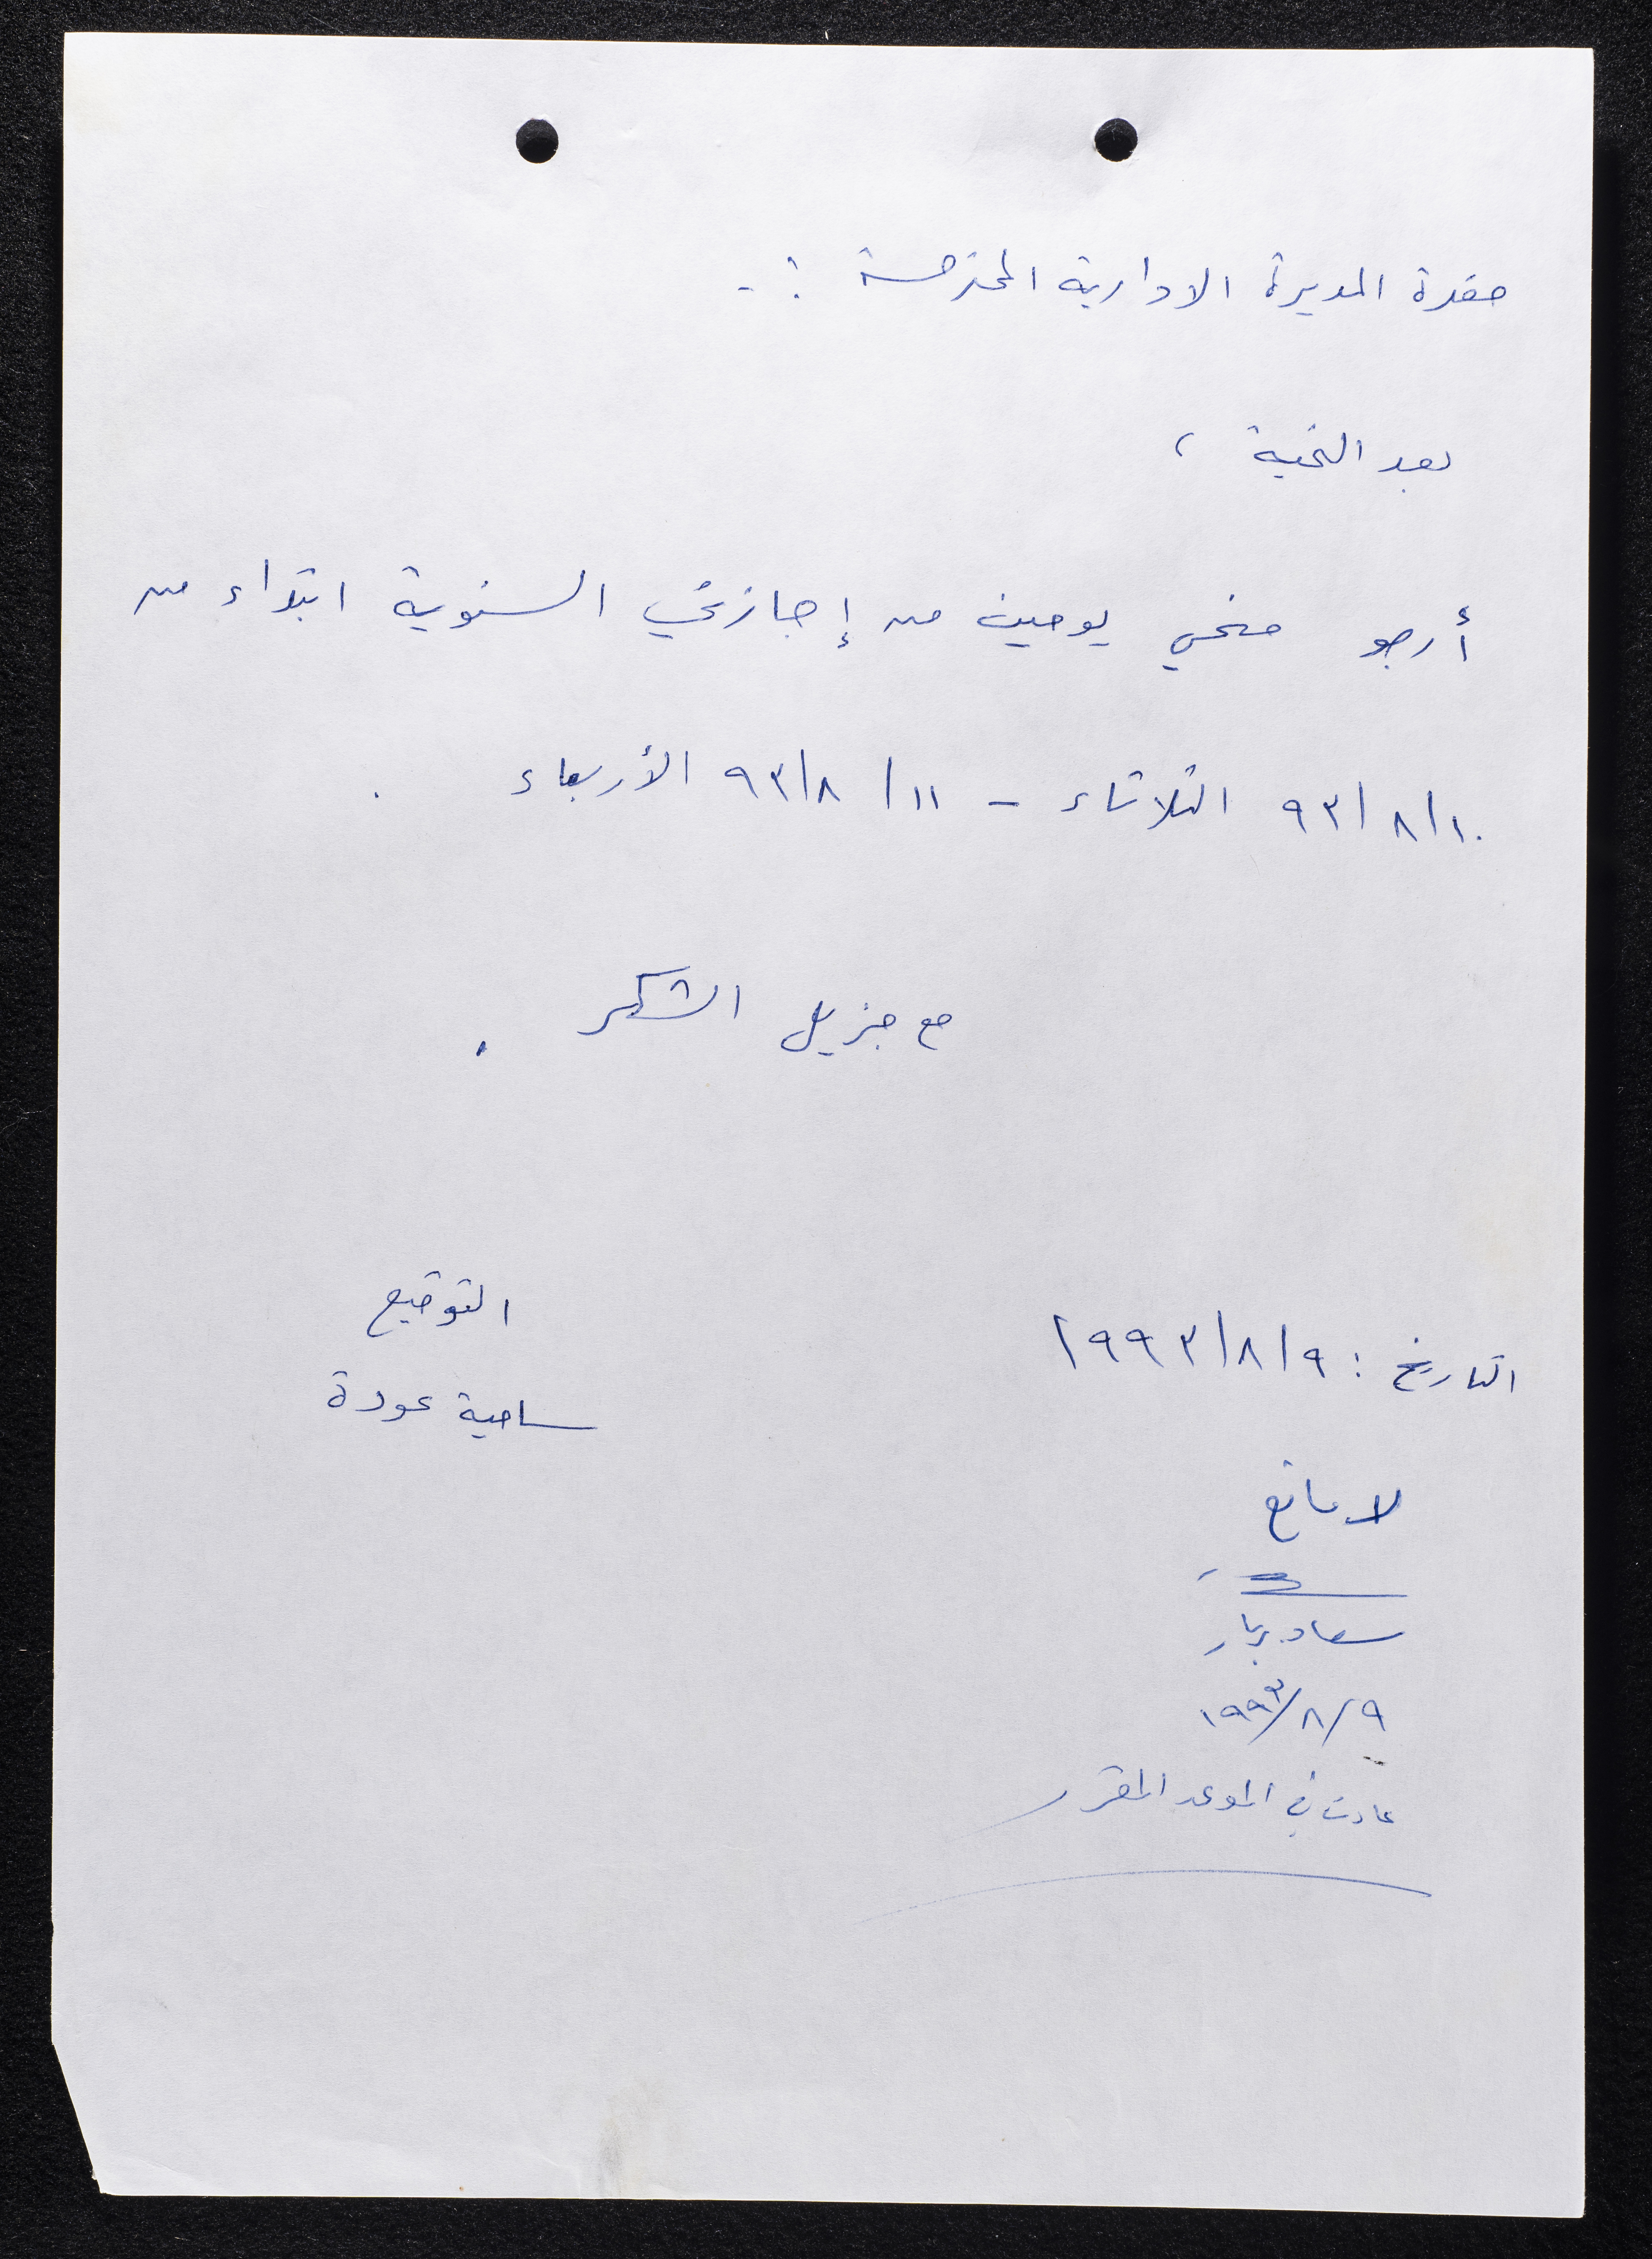 حضرة المديرة الادارية المحترمة :-
بعد التحية ،
أرجو منحي يومين من إجازتي السنوية ابتداء من
٩٣/٨/١٠ الثلاثاء - ٩٣/٨/١١ الأربعاء .
مع جزيل الشكر .
التوقيع
التاريخ : ١٩٩٣/٨/٩
سامية عودة
لا مانع
سعاد
١٩٩٣/٨/٩
عادت في الموعد المقرر